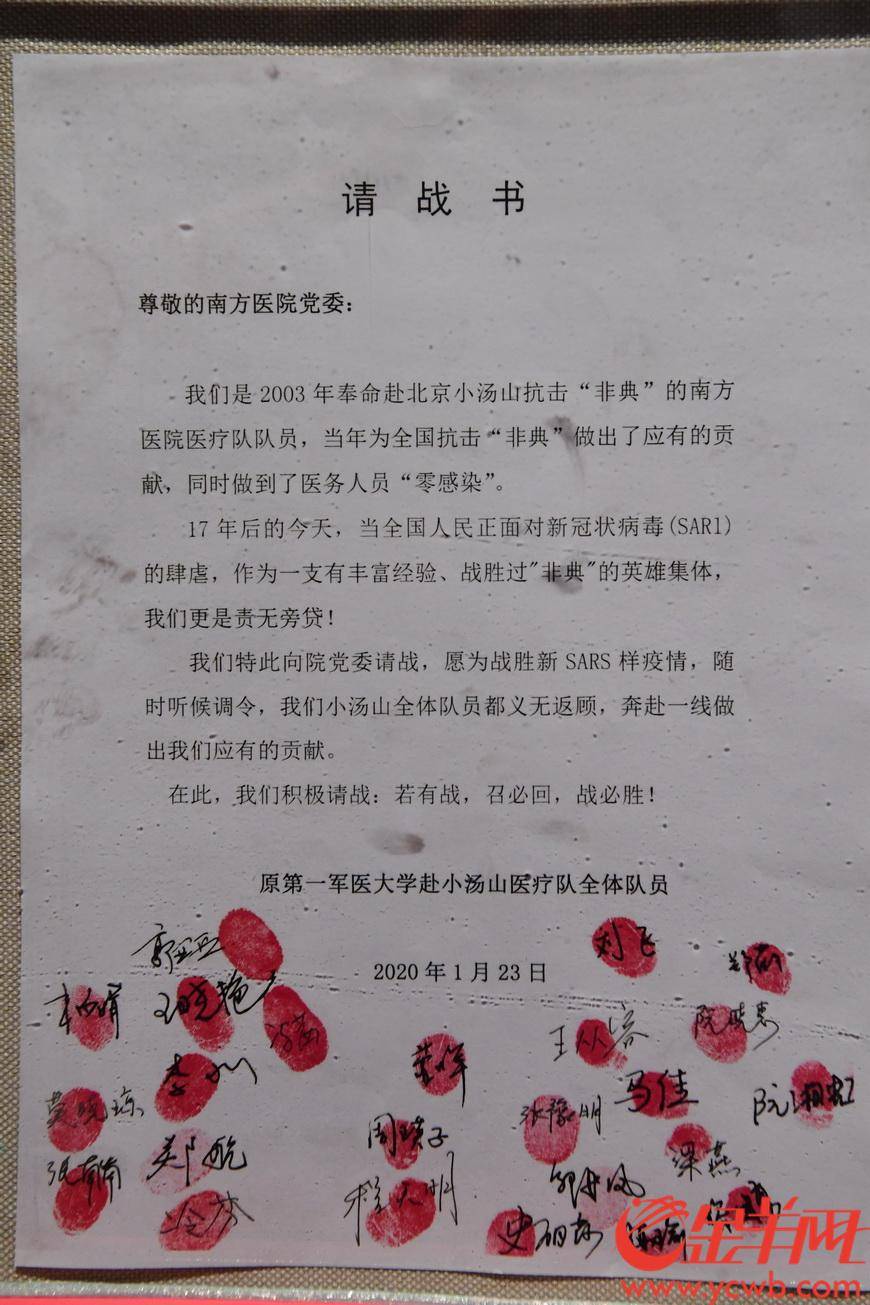 请战书
尊敬的南方医院党委：
我们是2003年奉命赴北京小汤山抗击“非典”的南方
医院医疗队队员，当年为全国抗击“非典”做出了应有的贡
献，同时做到了医务人员“零感染”。
17年后的今天，当全国人民正面对新冠状病毒(SARl)
的肆虐，作为一支有丰富经验、战胜过"非典"的英雄集体，
我们更是责无旁贷！
我们特此向院党委请战，愿为战胜新SARS样疫情，随
时听候调令，我们小汤山全体队员都义无返顾，奔赴一线做
出我们应有的贡献。
在此，我们积极请战：若有战，召必回，战必胜！
原第一军医大学赴小汤山医疗队全体队员
刘飞
2020年1月23日
王晓艳
阮晓惠
莫晓琼
张豫明
马佳
阮湘虹
张南南
郑航
梁燕
金羊网
www.ycwb.com